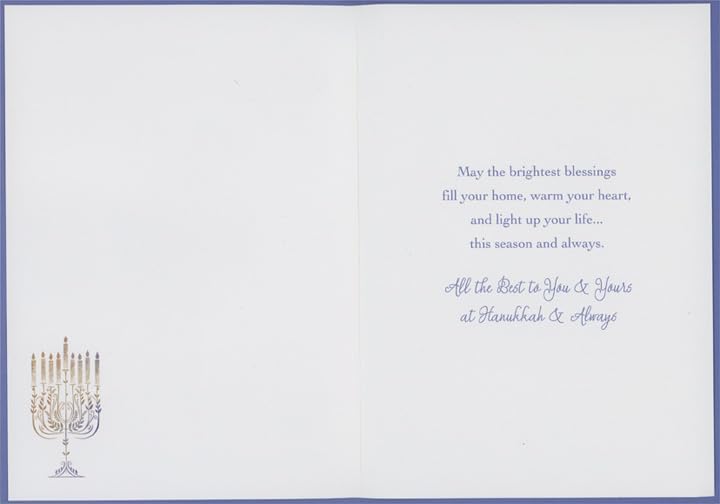 May the brightest blessings
fill your home, warm your heart,
and light up your life...
this season and always.
All the Best to You & Yours
at Hanukkah & Always